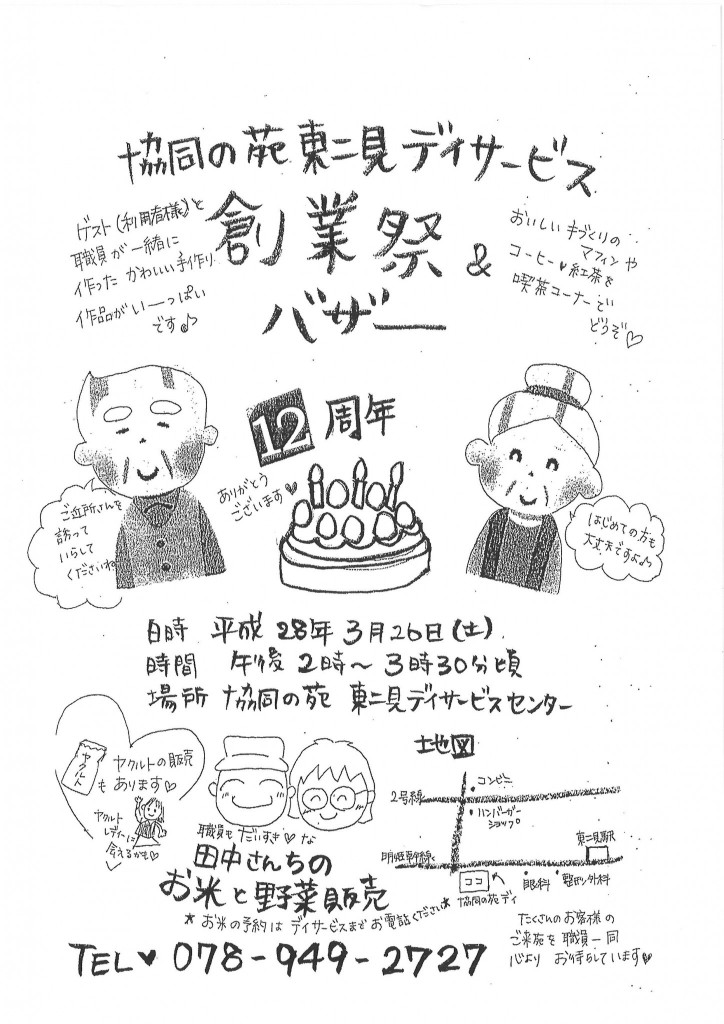 協同の苑 東二見 デイサービス
創業祭 &
バザー
ゲスト(利用者様)と
職員が一緒に
作った かわいい手作り
作品がいーっぱい
です♪
おいしい 手づくりの
マフィンや
コーヒー♥紅茶を
喫茶コーナーで
どうぞ♡
12周年
ありがとう
ございます♥
ご近所さんを
誘って
いらして
くださいね
はじめての方も
大丈夫ですよ♪
日時 平成 28年 3月26日(土)
時間 午後 2時〜3時30分頃
場所 協同の苑 東二見デイサービスセンター
ヤクルト
ヤクルトの販売
も あります♡
ヤクルト
レディーに
会えるかも♡
職員も だいすき♥な
田中さんちの
お米と野菜販売
*お米の予約は デイサービスまで お電話ください*
地図
・コンビニ
2号線
・ハンバーガー
ショップ
東二見駅
明姫幹線
ココ
協同の苑 デイ
・眼科
・整形外科
たくさんのお客様の
ご来苑を 職員一同
心より お待ちしています♡
TEL♥ 078-949-2727